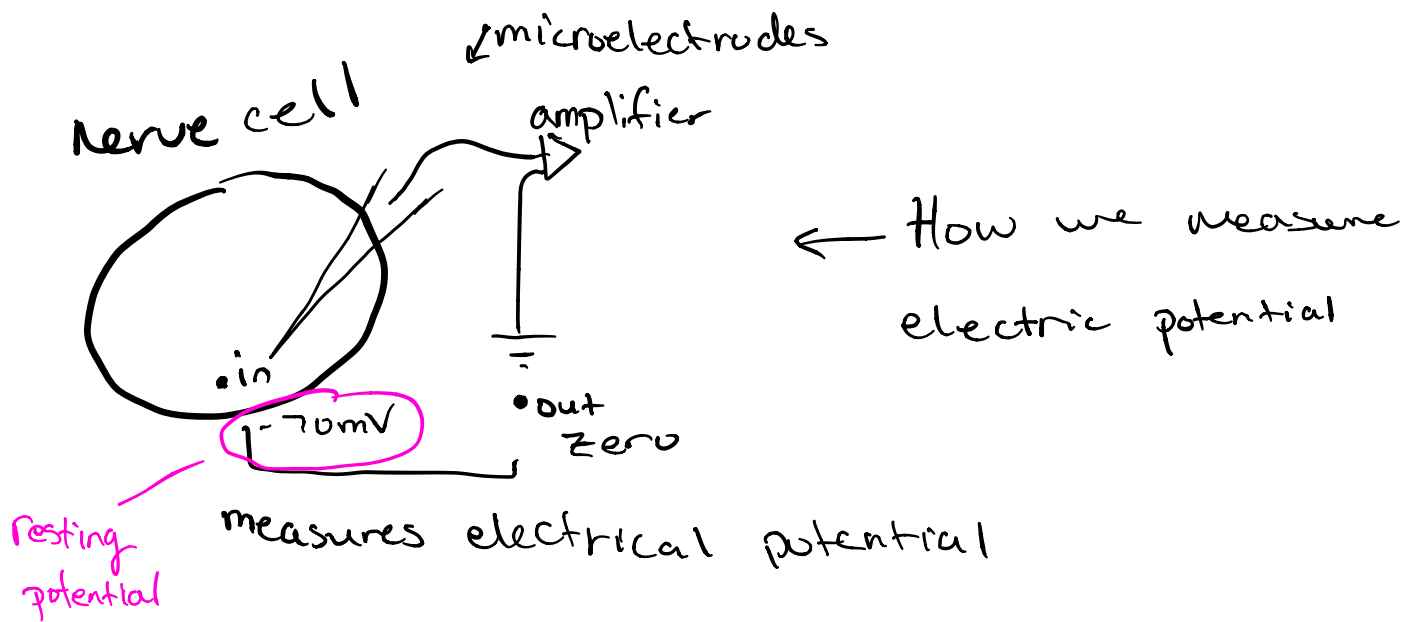 microelectrodes
nerve cell
amplifier
How we measure
electric potential
.in
-70mV
out
zero
resting
potential
measures electrical potential